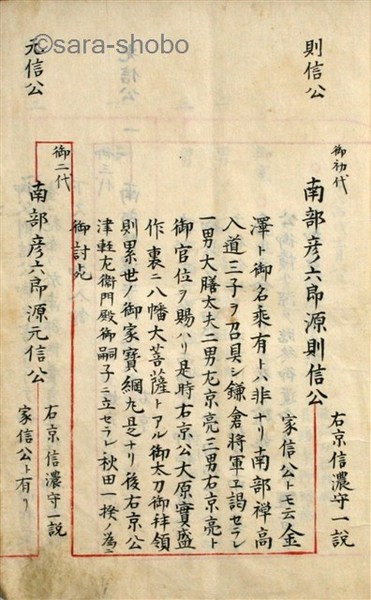 ©sara-shobo
則信公
御初代
南部彦六郎源則信公
右京信濃守一説
家信公トモ云金
澤ト御名乗有トハ非ナリ南部禅高
入道三子ヲ召具シ鎌倉將軍エ謁セラレ
一男大膳太夫二男左京亮三男右京亮ト
御官位ヲ賜ハリ是時右京公大原實盛
作裏ニ八幡大菩薩トアル御太刀御拝領
則累世ノ御家寳綱丸是ナリ後右京公
津軽左衛門殿御嗣子ニ立セラレ秋田一揆ノ為ニ
御討死
元信公
御二代
南部彦六郎源元信公
右京信濃守一説
家信公ト有リ